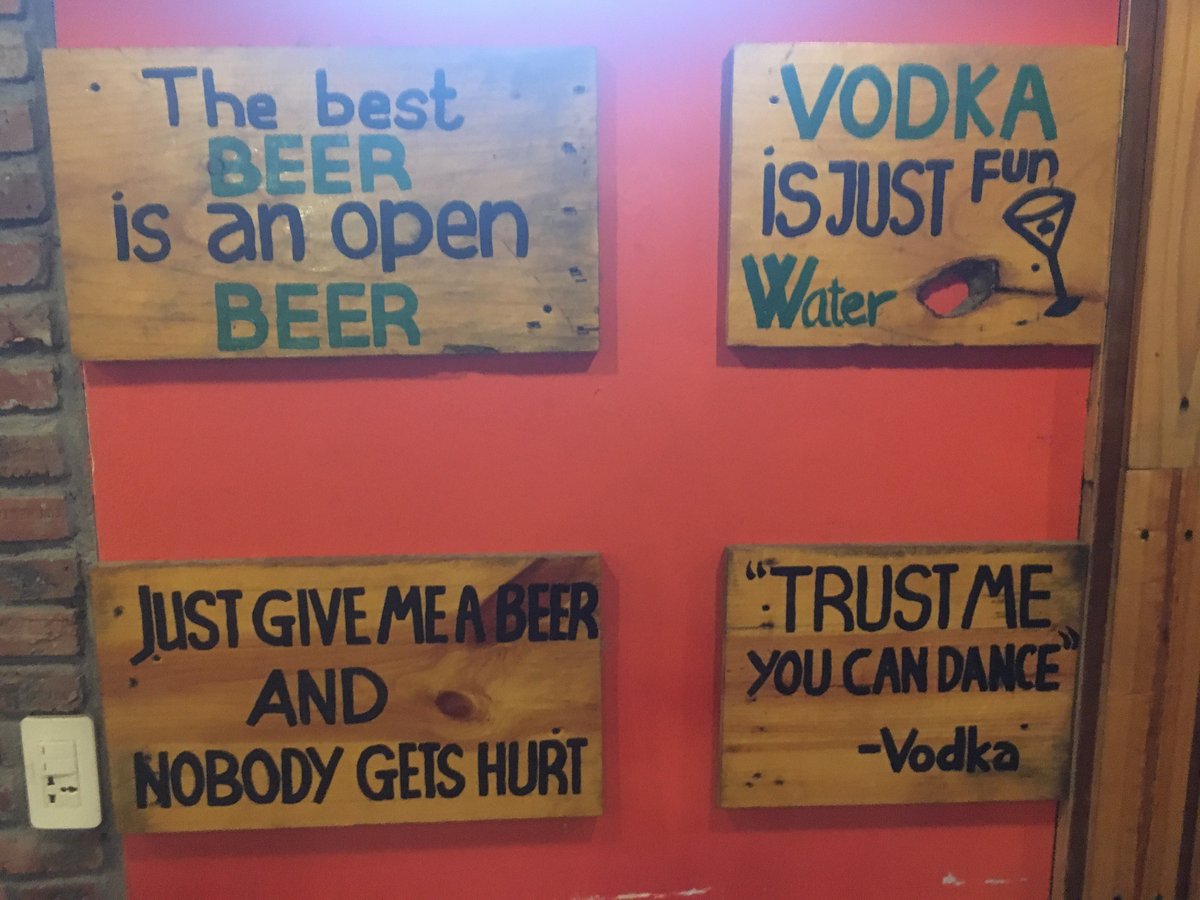 The best
BEER
is an open
BEER
VODKA
iS JUST Fun
Water
JUST GIVE ME A BEER
AND
NOBODY GETS HURT
“TRUST ME
YOU CAN DANCE”
-Vodka